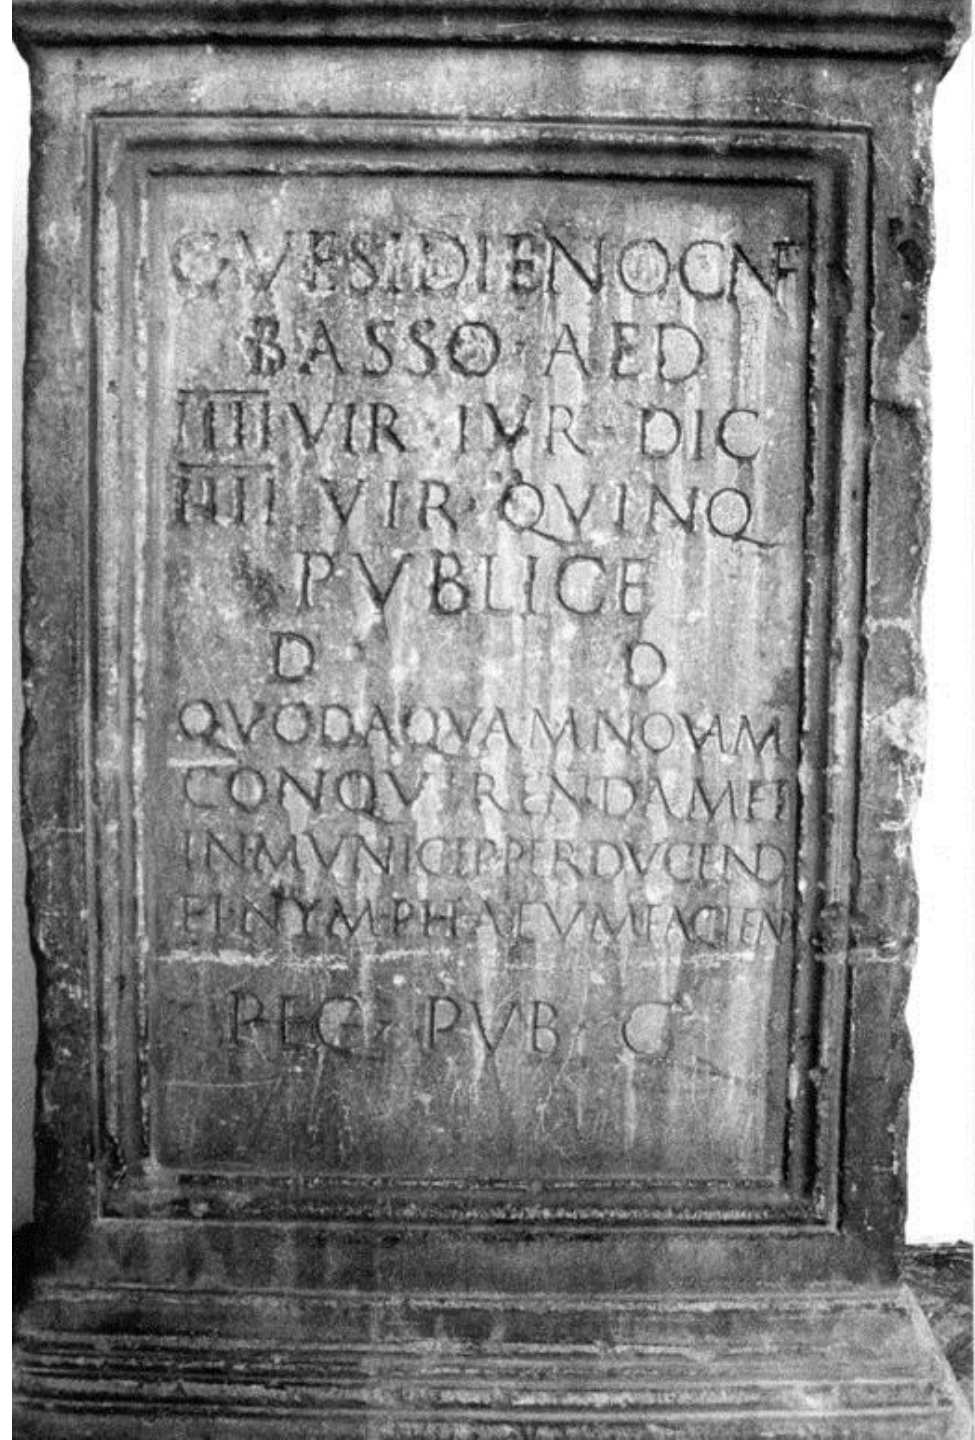 C·VESIDIENO CN F
BASSO · AED
IIII VIR · IVR · DIC
IIII VIR · QVINQ
PVBLICE
D D
QVOD AQVAM NOVAM
CONQVIRENDAM ET
IN MVNICEP PERDVCEND
ET NYMPHAEVM FACIEN
PVB C